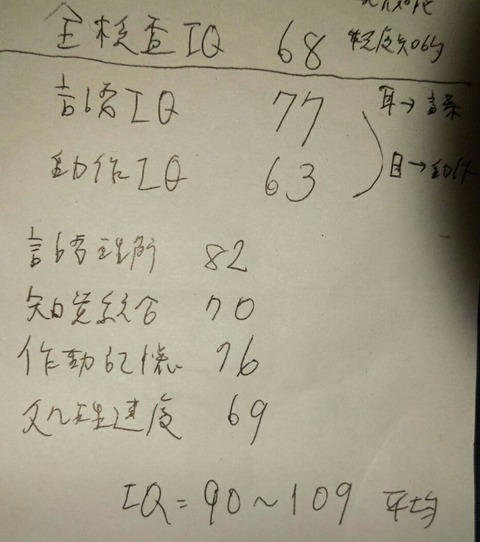 全検査IQ 68 軽度知的
言語IQ 77 耳→言葉
動作IQ 63 目→動作
言語理解 82
知覚統合 70
作動記憶 76
処理速度 69
IQ=90~109 平均